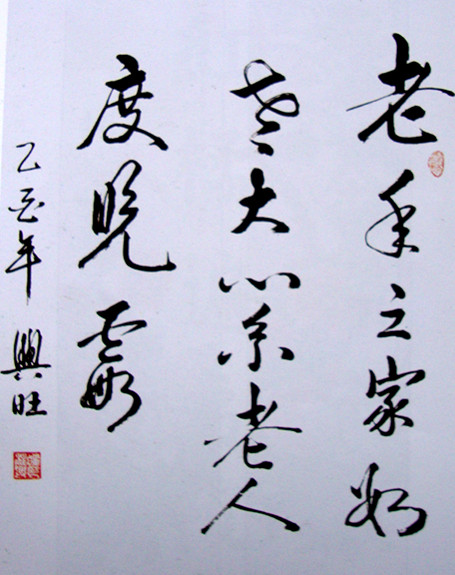 老年之家好
大心系老人
度晚霞
乙酉年 興旺